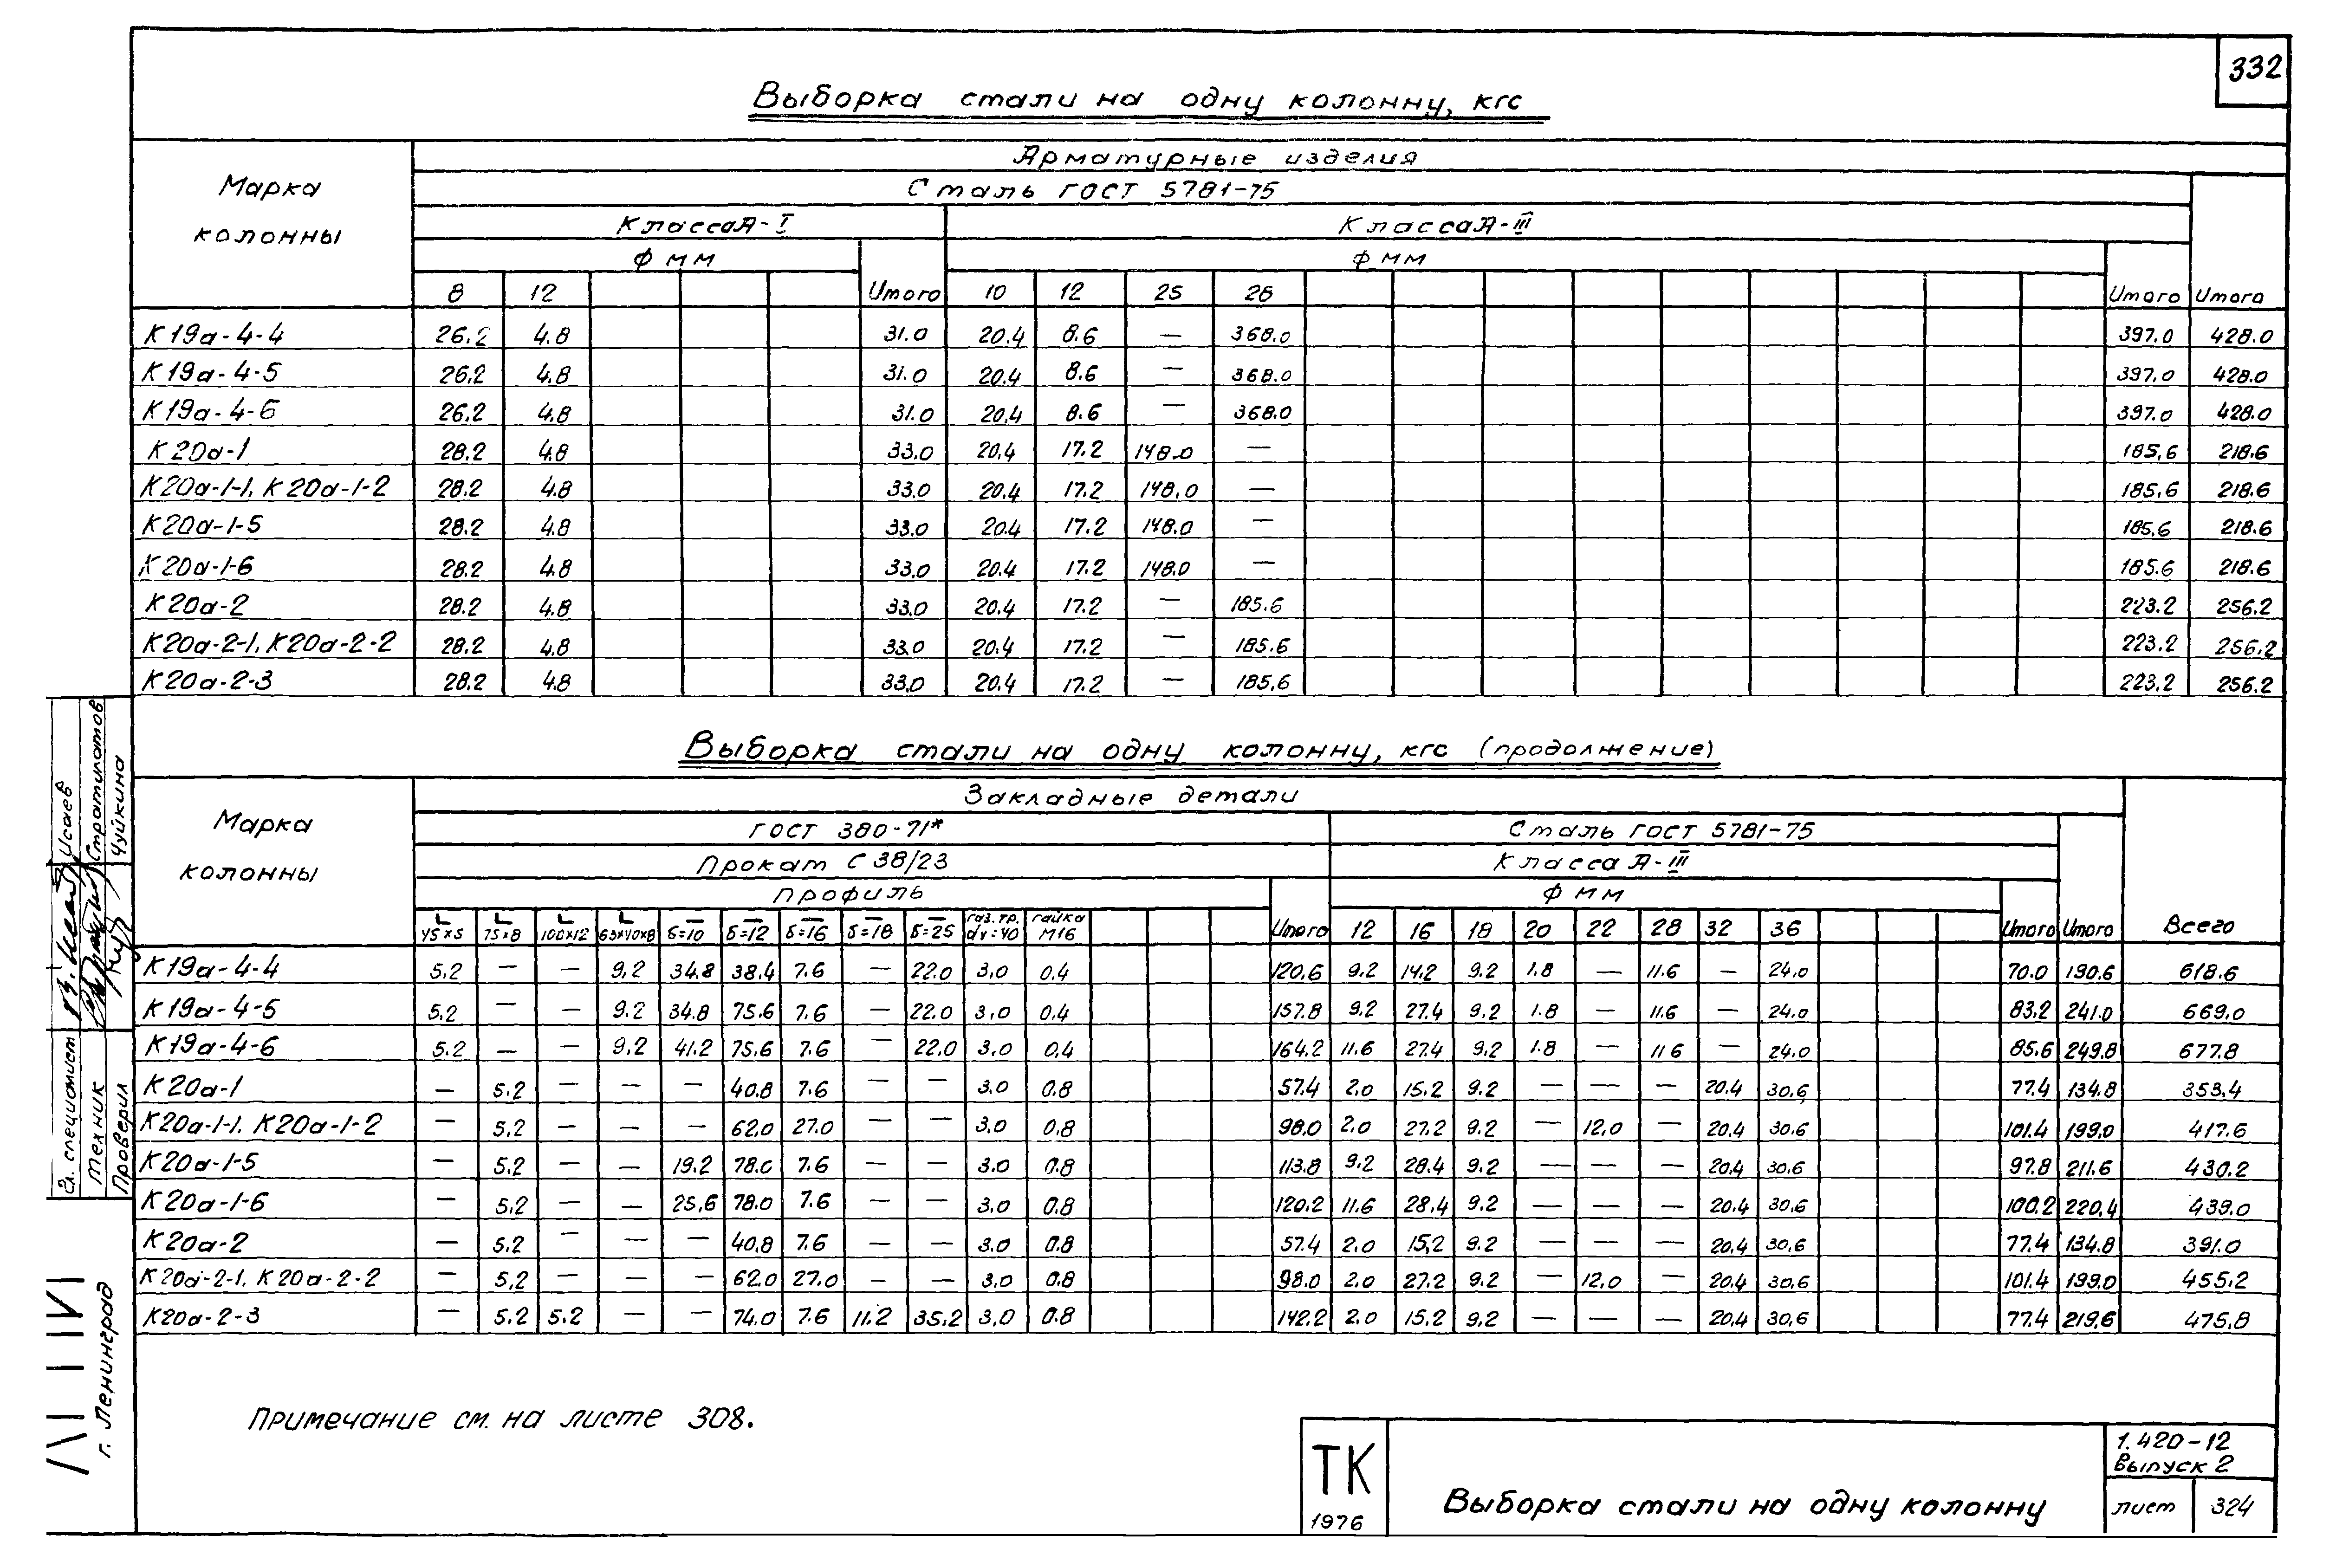 332
Выборка стали на одну колонну, кгс
Марка колонны
Арматурные изделия
Сталь ГОСТ 5781-75
Класса А-I Класса А-III
Ф мм Ф мм
8 12 Итого 10 12 25 28 Итого Итого
К19а-4-4 26.2 4.8 31.0 20.4 8.6 — 368.0 397.0 428.0
К19а-4-5 26.2 4.8 31.0 20.4 8.6 — 368.0 397.0 428.0
К19а-4-6 26.2 4.8 31.0 20.4 8.6 — 368.0 397.0 428.0
К20а-1 28.2 4.8 33.0 20.4 17.2 148.0 — 185.6 218.6
К20а-1-1, К20а-1-2 28.2 4.8 33.0 20.4 17.2 148.0 — 185.6 218.6
К20а-1-5 28.2 4.8 33.0 20.4 17.2 148.0 — 185.6 218.6
К20а-1-6 28.2 4.8 33.0 20.4 17.2 148.0 — 185.6 218.6
К20а-2 28.2 4.8 33.0 20.4 17.2 — 185.6 223.2 256.2
К20а-2-1, К20а-2-2 28.2 4.8 33.0 20.4 17.2 — 185.6 223.2 256.2
К20а-2-3 28.2 4.8 33.0 20.4 17.2 — 185.6 223.2 256.2
Выборка стали на одну колонну, кгс (продолжение)
Марка колонны
Закладные детали
ГОСТ 380-71* Сталь ГОСТ 5781-75
Прокат С 38/23 Класса А-III
Профиль Ф мм
45×5 75×8 100×12 63×40×8 δ=10 δ=12 δ=16 δ=18 δ=25 газ.тр. dу=40 гайка М16 Итого 12 16 18 20 22 28 32 36 Итого Итого Всего
К19а-4-4 5.2 — — 9.2 34.8 38.4 7.6 — 22.0 3.0 0.4 120.6 9.2 14.2 9.2 1.8 — 11.6 — 24.0 70.0 190.6 618.6
К19а-4-5 5.2 — — 9.2 34.8 75.6 7.6 — 22.0 3.0 0.4 157.8 9.2 27.4 9.2 1.8 — 11.6 — 24.0 83.2 241.0 669.0
К19а-4-6 5.2 — — 9.2 41.2 75.6 7.6 — 22.0 3.0 0.4 164.2 11.6 27.4 9.2 1.8 — 11.6 — 24.0 85.6 249.8 677.8
К20а-1 — 5.2 — — — 40.8 7.6 — — 3.0 0.8 57.4 2.0 15.2 9.2 — — — 20.4 30.6 77.4 134.8 353.4
К20а-1-1, К20а-1-2 — 5.2 — — — 62.0 27.0 — — 3.0 0.8 98.0 2.0 27.2 9.2 — 12.0 — 20.4 30.6 101.4 199.0 417.6
К20а-1-5 — 5.2 — — 19.2 78.0 7.6 — — 3.0 0.8 113.8 9.2 28.4 9.2 — — — 20.4 30.6 97.8 211.6 430.2
К20а-1-6 — 5.2 — — 25.6 78.0 7.6 — — 3.0 0.8 120.2 11.6 28.4 9.2 — — — 20.4 30.6 100.2 220.4 439.0
К20а-2 — 5.2 — — — 40.8 7.6 — — 3.0 0.8 57.4 2.0 15.2 9.2 — — — 20.4 30.6 77.4 134.8 391.0
К20а-2-1, К20а-2-2 — 5.2 — — — 62.0 27.0 — — 3.0 0.8 98.0 2.0 27.2 9.2 — 12.0 — 20.4 30.6 101.4 199.0 455.2
К20а-2-3 — 5.2 5.2 — — 74.0 7.6 11.2 35.2 3.0 0.8 142.2 2.0 15.2 9.2 — — — 20.4 30.6 77.4 219.6 475.8
Примечание см. на листе 308.
Гл. специалист Исаев
Техник Стратилатов
Проверил Чуйкина
г. Ленинград
ТК
1976
Выборка стали на одну колонну
1.420-12
Выпуск 2
лист 324